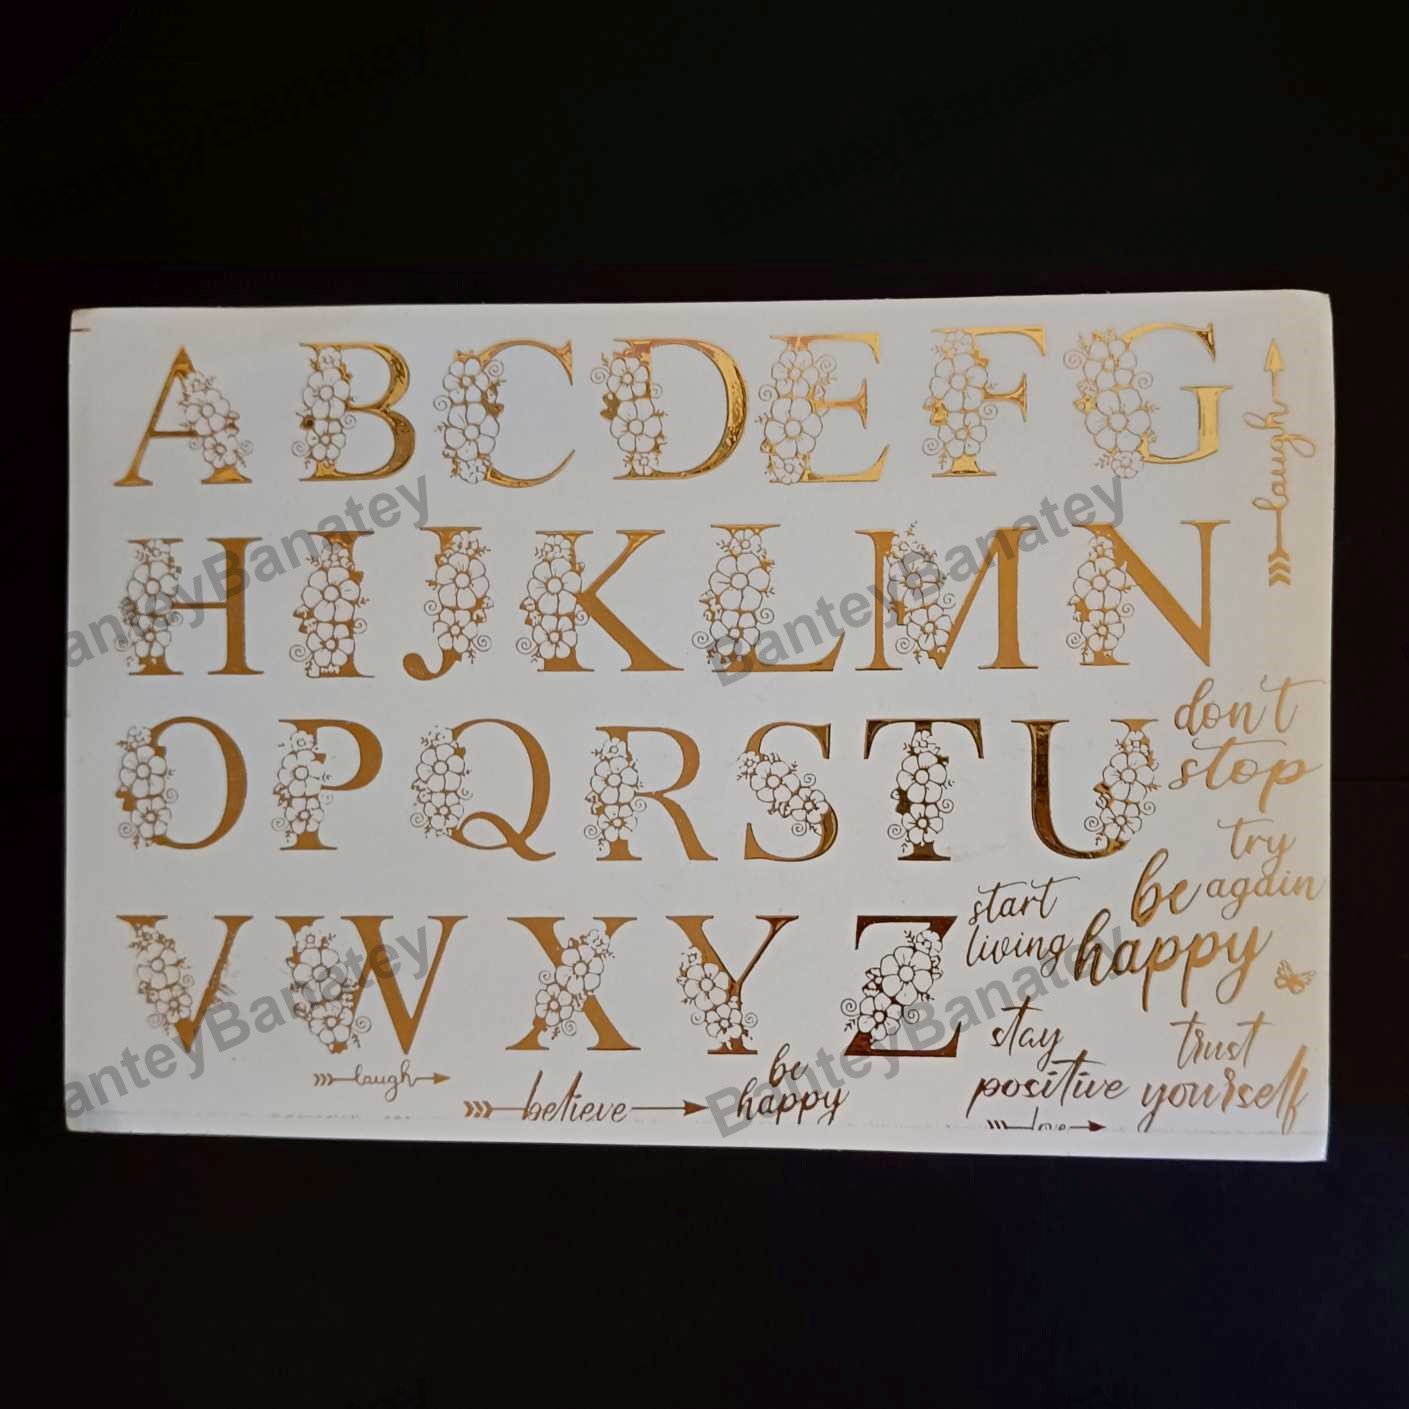 A B C D E F G
laugh
H I J K L M N
don't
stop
O P Q R S T U
try
again
be
happy
start
living
V W X Y Z
stay
positive
trust
yourself
laugh
believe
be
happy
love
BanteyBanatey
BanteyBanatey
BanteyBanatey
BanteyBanatey
BanteyBanatey
BanteyBanatey